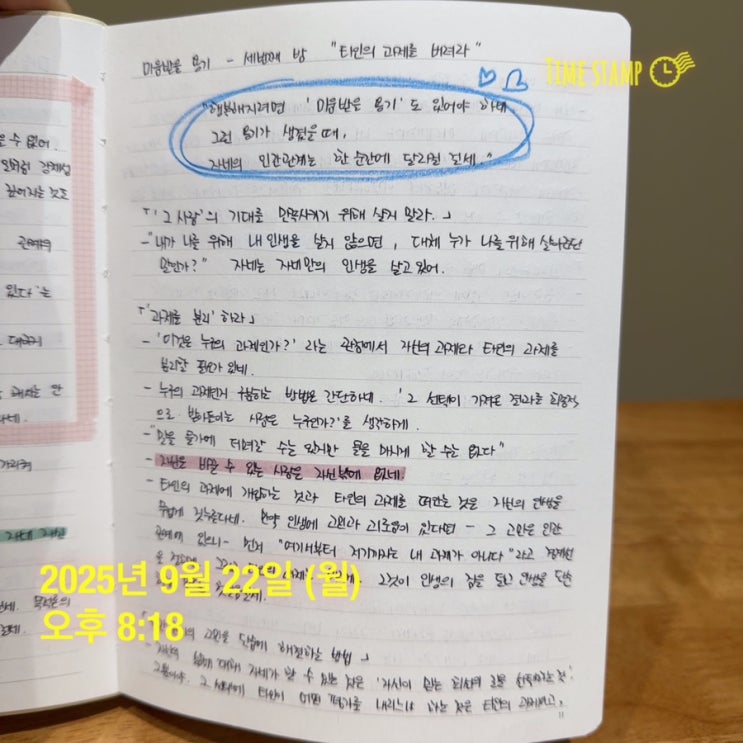 미움받을 용기 - 세번째 밤 "타인의 과제를 버려라"
TIME STAMP
"행복해지려면 '미움받을 용기'도 있어야 하네.
그런 용기가 생겼을 때,
자네의 인간관계는 한 순간에 달라질 걸세."
「'그 사람'의 기대를 만족시키기 위해 살지 말라.」
- "내가 나를 위해 내 인생을 살지 않으면, 대체 누가 나를 위해 살아준단
말인가?" 자네는 자네만의 인생을 살고 있어.
「'과제를 분리' 하라」
- '이것은 누구의 과제인가?' 라는 관점에서 자신의 과제와 타인의 과제를
분리할 필요가 있네.
- 누구의 과제인지 구분하는 방법은 간단하네. '그 선택이 가져온 결과를 최종적
으로 받아들이는 사람은 누구인가?'를 생각하게.
- "말을 물가에 데려갈 수는 있지만 물을 마시게 할 수는 없다"
- 자신을 바꿀 수 있는 사람은 자신밖에 없네.
- 타인의 과제에 개입하는 것과 타인의 과제를 떠안는 것은 자신의 인생을
무겁게 짓누른다네. 만약 인생에 고민과 괴로움이 있다면 - 그 고민은 인간
관계에 있으니 - 먼저 "여기서부터 저기까지는 내 과제가 아니다"라고 경계선
을 그것이 인생의 짐을 덜고 인생을 단순
2025년 9월 22일 (월)
오후 8:18
고민을 단숨에 해결하는 방법」
- 자신의 삶에 대해 자네가 할 수 있는 것은 '자신이 믿는 최선의 길을 선택하는 것'.
그뿐이야. 그 선택에 타인이 어떤 평가를 내리느냐 하는 것은 타인의 과제이고,
있다'는
관계의
11